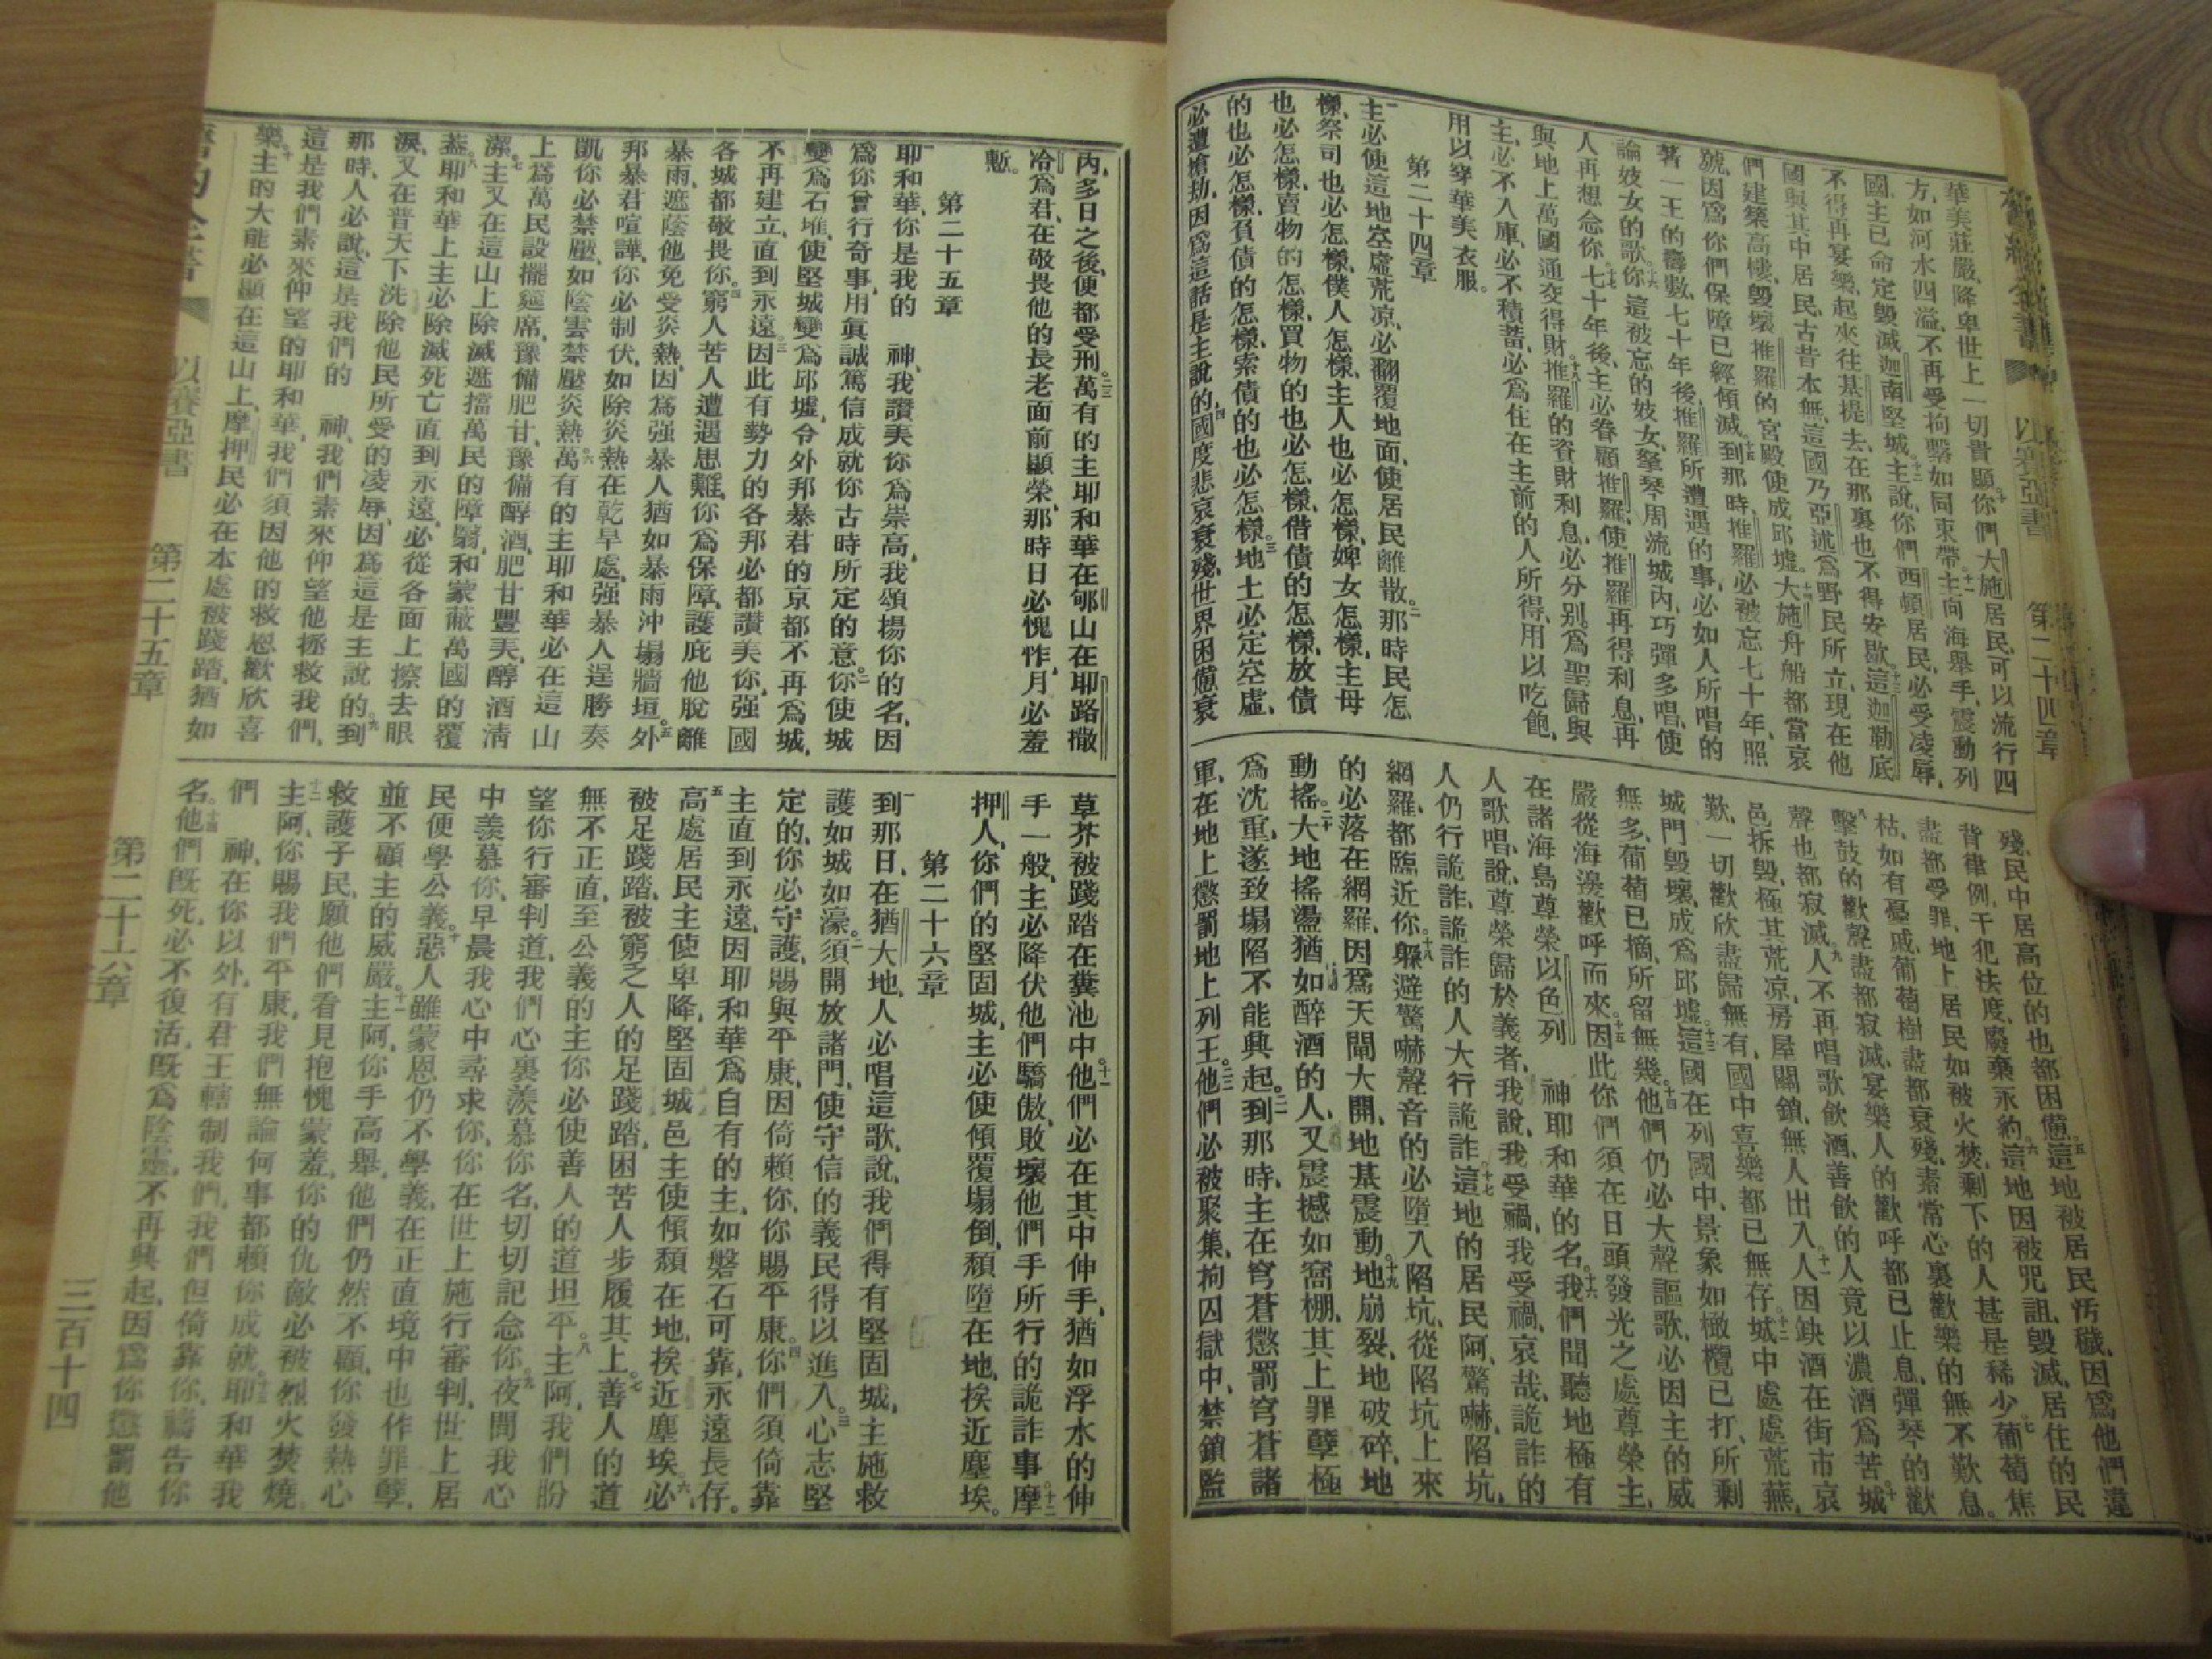 以賽亞書
第二十四章
華美莊嚴、降卑世上一切貴顯、你們大施居民、可以流行四
方、如河水四溢、不再受拘擊如同束帶。主向海舉手、震動列
國、主已命定毀滅迦南堅城。主說、你們西頓居民、必受凌辱、
不得再宴樂、起來往基提去、在那裏也不得安歇。這迦勒底
國與其中居民、古昔本無、這國乃亞述為野民所立、現在他
們建築高樓、毀壞推羅的宮殿、使成邱墟。大施舟船都當哀
號、因為你們保障已經傾滅。到那時、推羅必被忘七十年、照
著一王的壽數、七十年後、推羅所遭遇的事、必如人所唱的
論妓女的歌。你這被忘的妓女、拏琴周流城內、巧彈多唱、使
人再想念你。七十年後、主必眷顧推羅、使推羅再得利息、再
與地上萬國通交得財。推羅的資財利息、必分別為聖、歸與
主、必不入庫、必不積蓄、必為住在主前的人所得、用以吃飽、
用以穿華美衣服。
第二十四章
一主必使這地空虛荒凉、必翻覆地面、使居民離散。二那時民怎
樣、祭司也必怎樣、僕人怎樣、主人也必怎樣、婢女怎樣、主母
也必怎樣、賣物的怎樣、買物的也必怎樣、借債的怎樣、放債
的也必怎樣、負債的怎樣、索債的也必怎樣。三地土必定空虛、
必遭搶劫、因為這話是主說的。四國度悲哀衰殘、世界困憊衰
殘、民中居高位的也都困憊。五這地被居民汚穢、因為他們違
背律例、干犯法度、廢棄永約。六這地因被咒詛、毀滅、居住的民
盡都受罪、地上居民如被火焚、剩下的人甚是稀少。七葡萄焦
枯、如有憂戚、葡萄樹盡都衰殘、素常心裏歡樂的、無不歎息。
八擊鼓的歡聲盡都寂滅、宴樂人的歡呼都已止息、彈琴的歡
聲也都寂滅。九人不再唱歌飲酒、善飲的人竟以濃酒為苦。十城
邑拆毀、極其荒凉、房屋關鎖、無人出入。十一人因缺酒在街市哀
歎、一切歡欣盡歸無有、國中喜樂都已無存。十二城中處處荒蕪、
城門毀壞、成為邱墟。十三這國在列國中、景象如橄欖已打、所剩
無多、葡萄已摘、所留無幾。十四他們仍必大聲謳歌、必因主的威
嚴從海濱歡呼而來。十五因此你們須在日頭發光之處尊榮主、
在諸海島尊榮以色列　神耶和華的名。十六我們聞聽地極有
人歌唱、說、尊榮歸於義者、我說、我受禍、我受禍、哀哉、詭詐的
人仍行詭詐、詭詐的人大行詭詐。十七這地的居民阿、驚嚇、陷坑、
網羅、都臨近你。十八躱避驚嚇聲音的、必墮入陷坑、從陷坑上來
的、必落在網羅、因為天閘大開、地基震動。十九地崩裂、地破碎、地
動搖。二十大地搖盪、猶如醉酒的人、又震撼如窩棚、其上罪孽極
為沈重、遂致塌陷不能興起。二一到那時、主在穹蒼懲罰穹蒼諸
軍、在地上懲罰地上列王。二二他們必被聚集、拘囚獄中、禁鎖監
內、多日之後、便都受刑。二三萬有的主耶和華在郇山、在耶路撒
冷為君、在敬畏他的長老面前顯榮、那時日必愧怍、月必羞
慙。
第二十五章
一耶和華、你是我的　神、我讚美你為崇高、我頌揚你的名、因
為你曾行奇事、用眞誠篤信成就你古時所定的意。二你使城
變為石堆、使堅城變為邱墟、令外邦暴君的京都不再為城、
不再建立、直到永遠。三因此有勢力的各邦必都讚美你、强國
各城都敬畏你。四窮人苦人遭遇患難、你為保障、護庇他脫離
暴雨、遮蔭他免受炎熱、因為强暴人猶如暴雨沖塌牆垣。五外
邦暴君喧譁、你必制伏、如除炎熱在乾旱處、强暴人逞勝奏
凱、你必禁壓、如陰雲禁壓炎熱。六萬有的主耶和華必在這山
上為萬民設擺筵席、豫備肥甘、豫備醇酒、肥甘豐美、醇酒淸
潔。七主又在這山上除滅遮擋萬民的障翳、和蒙蔽萬國的覆
葢。八耶和華上主必除滅死亡直到永遠、必從各面上擦去眼
淚、又在普天下洗除他民所受的凌辱、因為這是主說的。到
那時、人必說、這是我們的　神、我們素來仰望他拯救我們、
這是我們素來仰望的耶和華、我們須因他的救恩歡欣喜
樂。十主的大能必顯在這山上、摩押民必在本處被踐踏、猶如
草芥被踐踏在糞池中。十一他們必在其中伸手、猶如浮水的伸
手一般、主必降伏他們驕傲、敗壞他們手所行的詭詐事。十二摩
押人、你們的堅固城、主必使傾覆塌倒、頹墮在地、挨近塵埃。
第二十六章
一到那日、在猶大地、人必唱這歌、說、我們得有堅固城、主施救
護、如城如濠。二須開放諸門、使守信的義民得以進入。三心志堅
定的、你必守護、賜與平康、因倚賴你、你賜平康。四你們須倚靠
主直到永遠、因耶和華為自有的主、如磐石可靠、永遠長存。
五高處居民主使卑降、堅固城邑主使傾頹在地、挨近塵埃。六必
被足踐踏、被窮乏人的足踐踏、困苦人步履其上。七善人的道
無不正直、至公義的主、你必使善人的道坦平。八主阿、我們盼
望你行審判道、我們心裏羨慕你名、切切記念你。九夜間我心
中羨慕你、早晨我心中尋求你、你在世上施行審判、世上居
民便學公義。十惡人雖蒙恩仍不學義、在正直境中也作罪孽、
並不顧主的威嚴。十一主阿、你手高舉、他們仍然不顧、你發熱心
救護子民、願他們看見抱愧蒙羞、你的仇敵必被烈火焚燒。
十二主阿、你賜我們平康、我們無論何事都賴你成就。十三耶和華我
們　神、在你以外、有君王轄制我們、我們但倚靠你、禱告你
名。十四他們旣死、必不復活、旣為陰靈、不再興起、因為你懲罰他
以賽亞書
第二十五章
第二十六章
三百十四